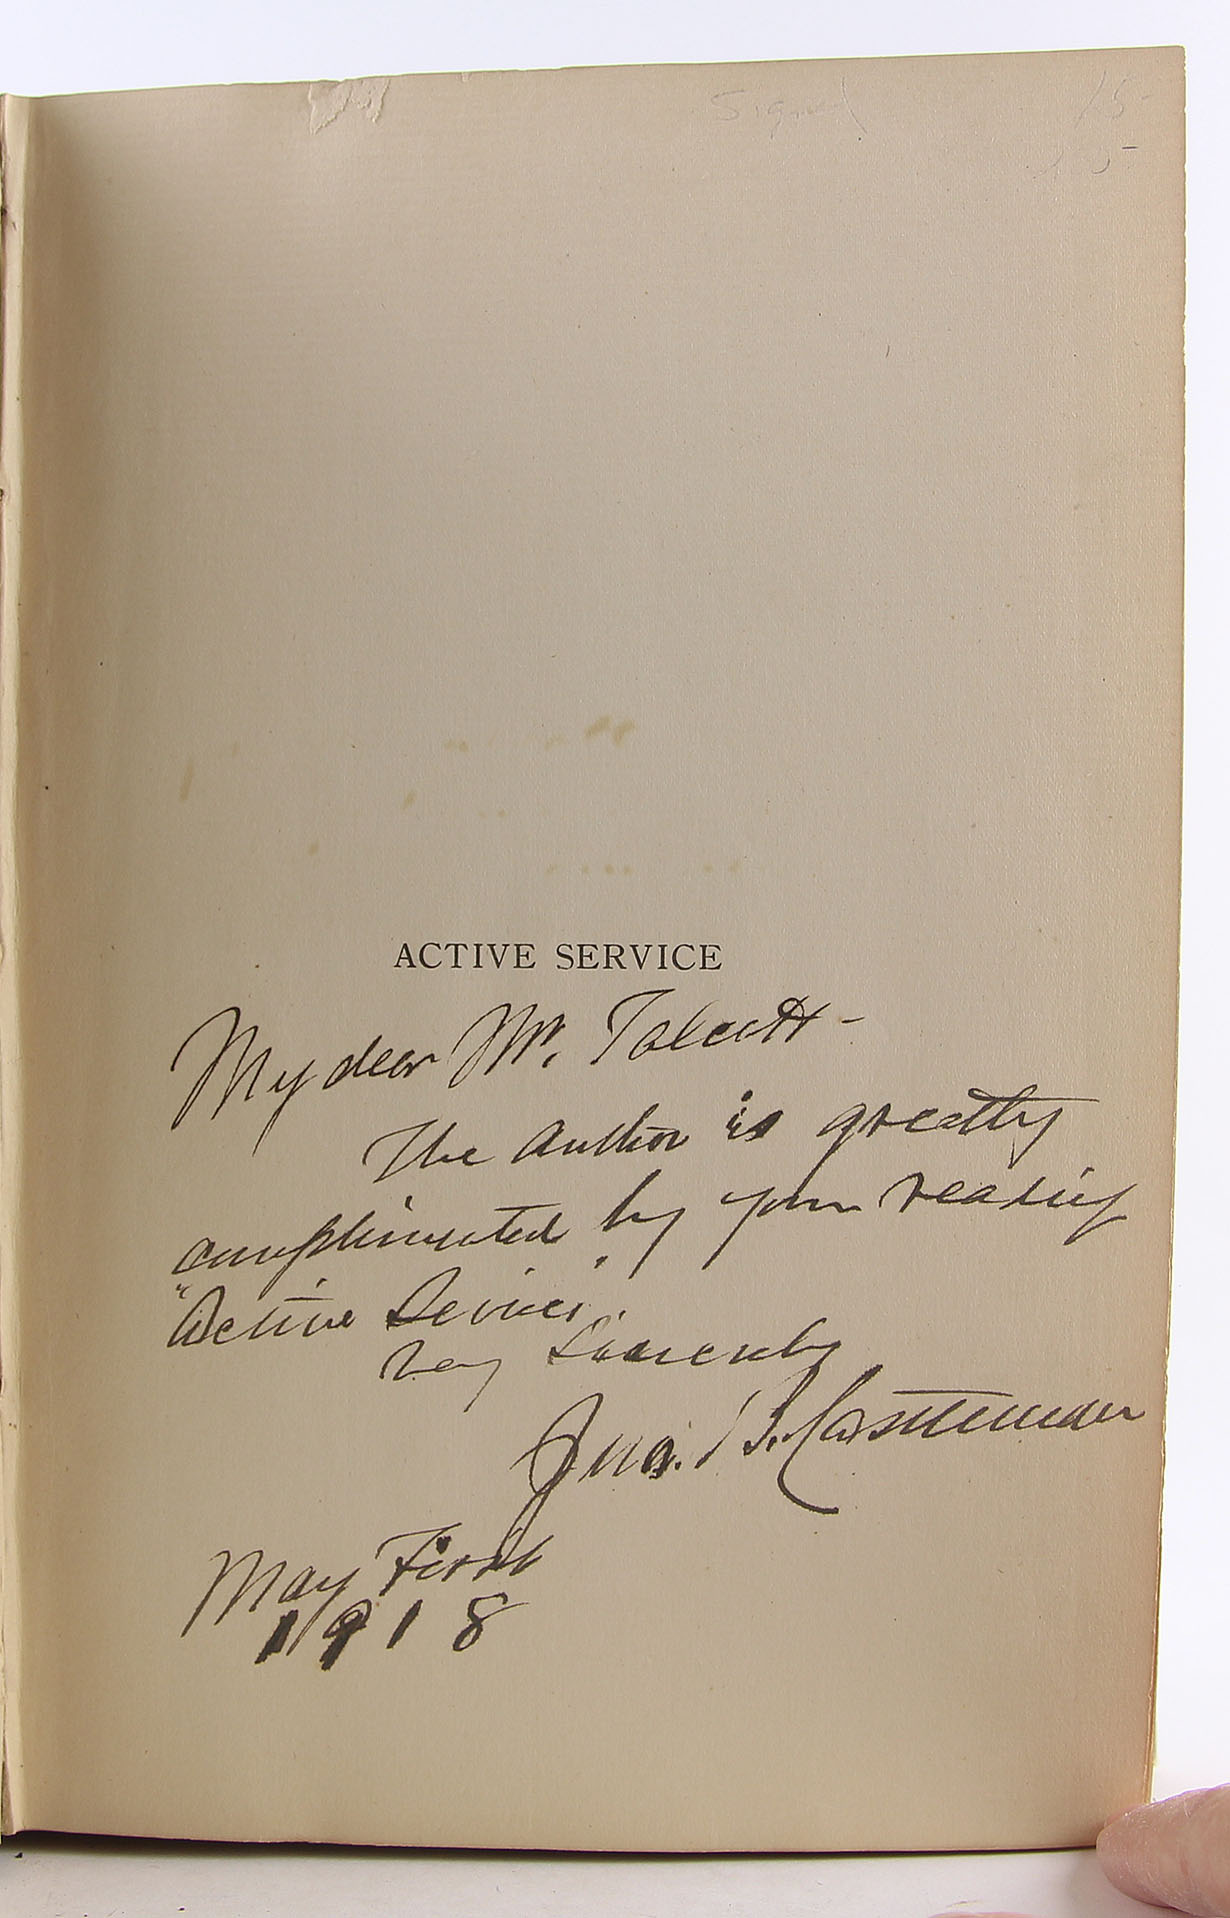 Signed 15-
ACTIVE SERVICE
My dear Mr. Talcott -
The Author is greatly
complimented by your reading
"Active Service".
Very Sincerely
Jno. B. Castleman
May First
1918